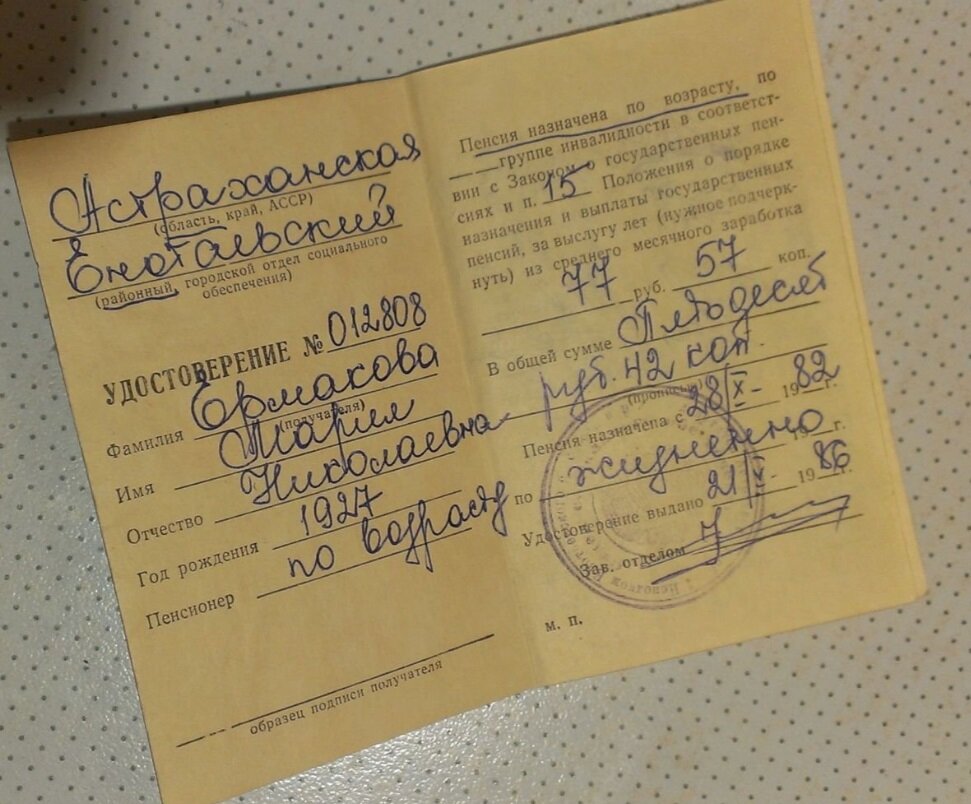 Астраханская
(область, край, АССР)
Енотаевский
(районный, городской отдел социального
обеспечения)
УДОСТОВЕРЕНИЕ № 012808
Фамилия Ермакова
(получателя)
Имя Мария
Отчество Николаевна
Год рождения 1927
Пенсионер по возрасту
образец подписи получателя
Пенсия назначена по возрасту, по
группе инвалидности в соответст-
вии с Законом о государственных пен-
сиях и п. 15 Положения о порядке
назначения и выплаты государственных
пенсий, за выслугу лет (нужное подчерк-
нуть) из среднего месячного заработка
77 руб. 57 коп.
В общей сумме Пятьдесят
руб. 42 коп.
(прописью)
Пенсия назначена с 28/X - 1982 г.
по жизненно 19 г.
Удостоверение выдано 21/X - 1986 г.
Зав. отделом
м. п.